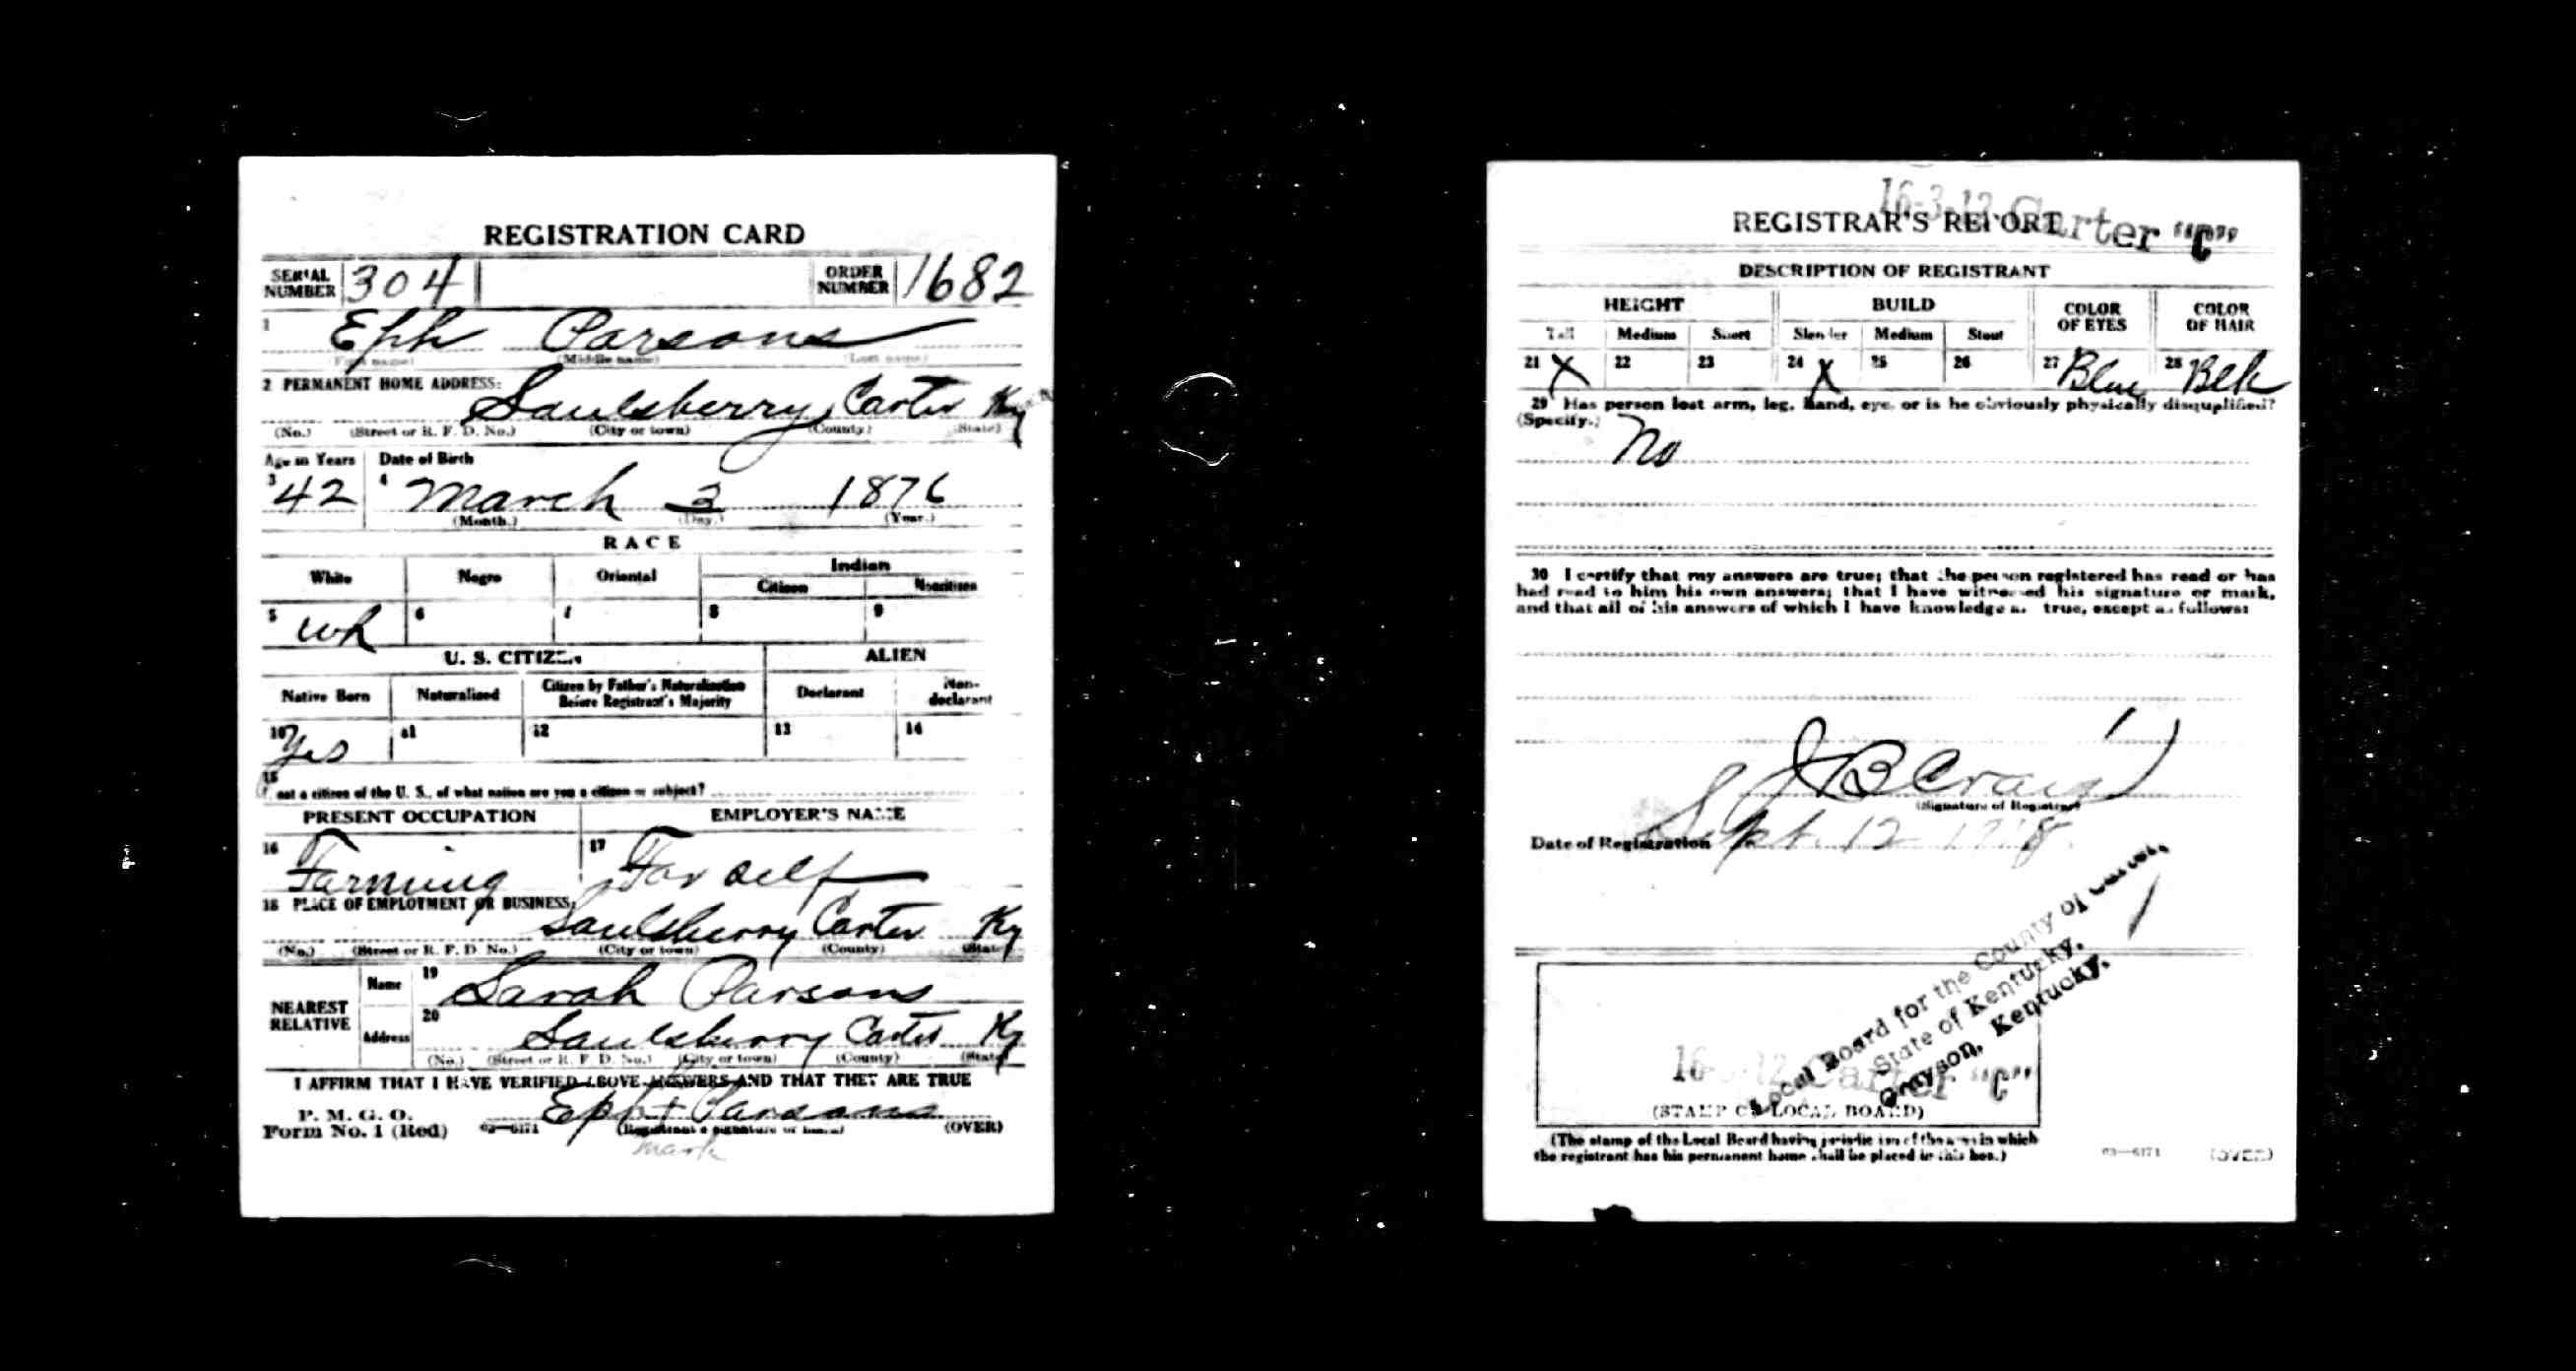 REGISTRATION CARD
SERIAL NUMBER 304 ORDER NUMBER 1682
1 Eph Parsons
(First name) (Middle name) (Last name)
2 PERMANENT HOME ADDRESS:
Saulsberry, Carter Ky
(No.) (Street or R. F. D. No.) (City or town) (County) (State)
Age in Years Date of Birth
3 42 4 March 3 1876
(Month.) (Day.) (Year.)
RACE
White Negro Oriental Indian
Citizen Noncitizen
5 wh 6 7 8 9
U. S. CITIZEN ALIEN
Native Born Naturalized Citizen by Father's Naturalization Before Registrant's Majority Declarant Non-declarant
10 Yes 11 12 13 14
15
not a citizen of the U. S., of what nation are you a citizen or subject?
PRESENT OCCUPATION EMPLOYER'S NAME
16 Farming 17 For self
18 PLACE OF EMPLOYMENT OR BUSINESS:
Saulsberry Carter Ky
(No.) (Street or R. F. D. No.) (City or town) (County) (State)
NEAREST RELATIVE
Name 19 Sarah Parsons
Address 20 Saulsberry Carter Ky
(No.) (Street or R. F. D. No.) (City or town) (County) (State)
I AFFIRM THAT I HAVE VERIFIED ABOVE ANSWERS AND THAT THEY ARE TRUE
P. M. G. O.
Form No. 1 (Red) 03—6171 Eph + Parsons (OVER)
(Registrant's signature or mark)
mark
16-3-12 Carter "C"
REGISTRAR'S REPORT
DESCRIPTION OF REGISTRANT
HEIGHT BUILD COLOR OF EYES COLOR OF HAIR
Tall Medium Short Slender Medium Stout
21 X 22 23 24 X 25 26 27 Blue 28 Blk
29 Has person lost arm, leg, hand, eye, or is he obviously physically disqualified?
(Specify.) No
30 I certify that my answers are true; that the person registered has read or has
had read to him his own answers; that I have witnessed his signature or mark,
and that all of his answers of which I have knowledge are true, except as follows:
J B Craig
(Signature of Registrar)
Date of Registration Sept. 12 1918
Local Board for the County of Carter,
State of Kentucky,
Grayson, Kentucky.
16-3-12 Carter "C"
(STAMP OF LOCAL BOARD)
(The stamp of the Local Board having jurisdiction of the area in which
the registrant has his permanent home shall be placed in this box.) 03—6171 (OVER)